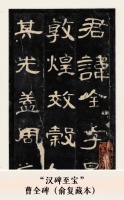 君諱全字景
敦煌效穀
其先蓋周
“汉碑至宝”
曹全碑（俞复藏本）